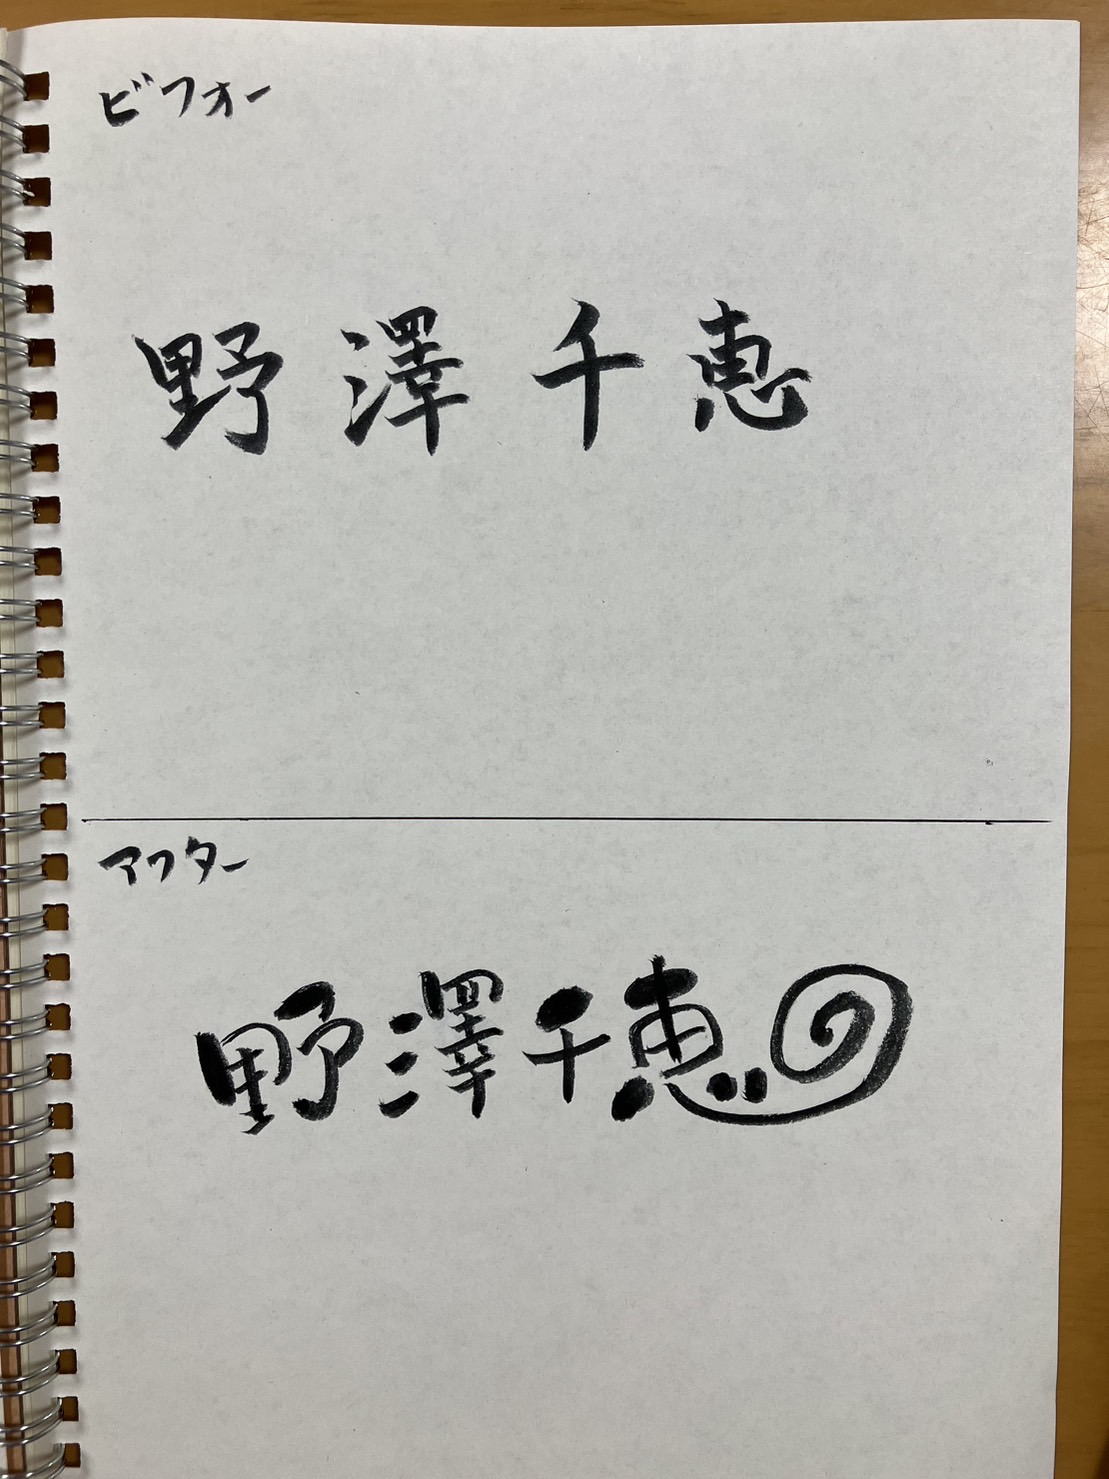 ビフォー
野澤千恵
アフター
野澤千恵